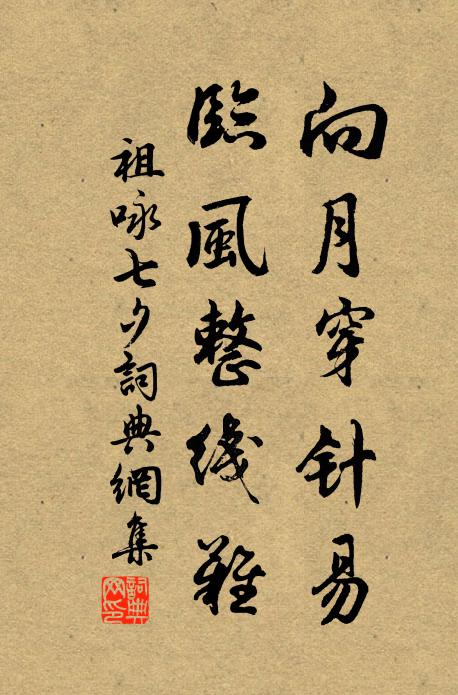 向月穿针易
臨風整线難
祖咏七夕詞典網集
詞典網印